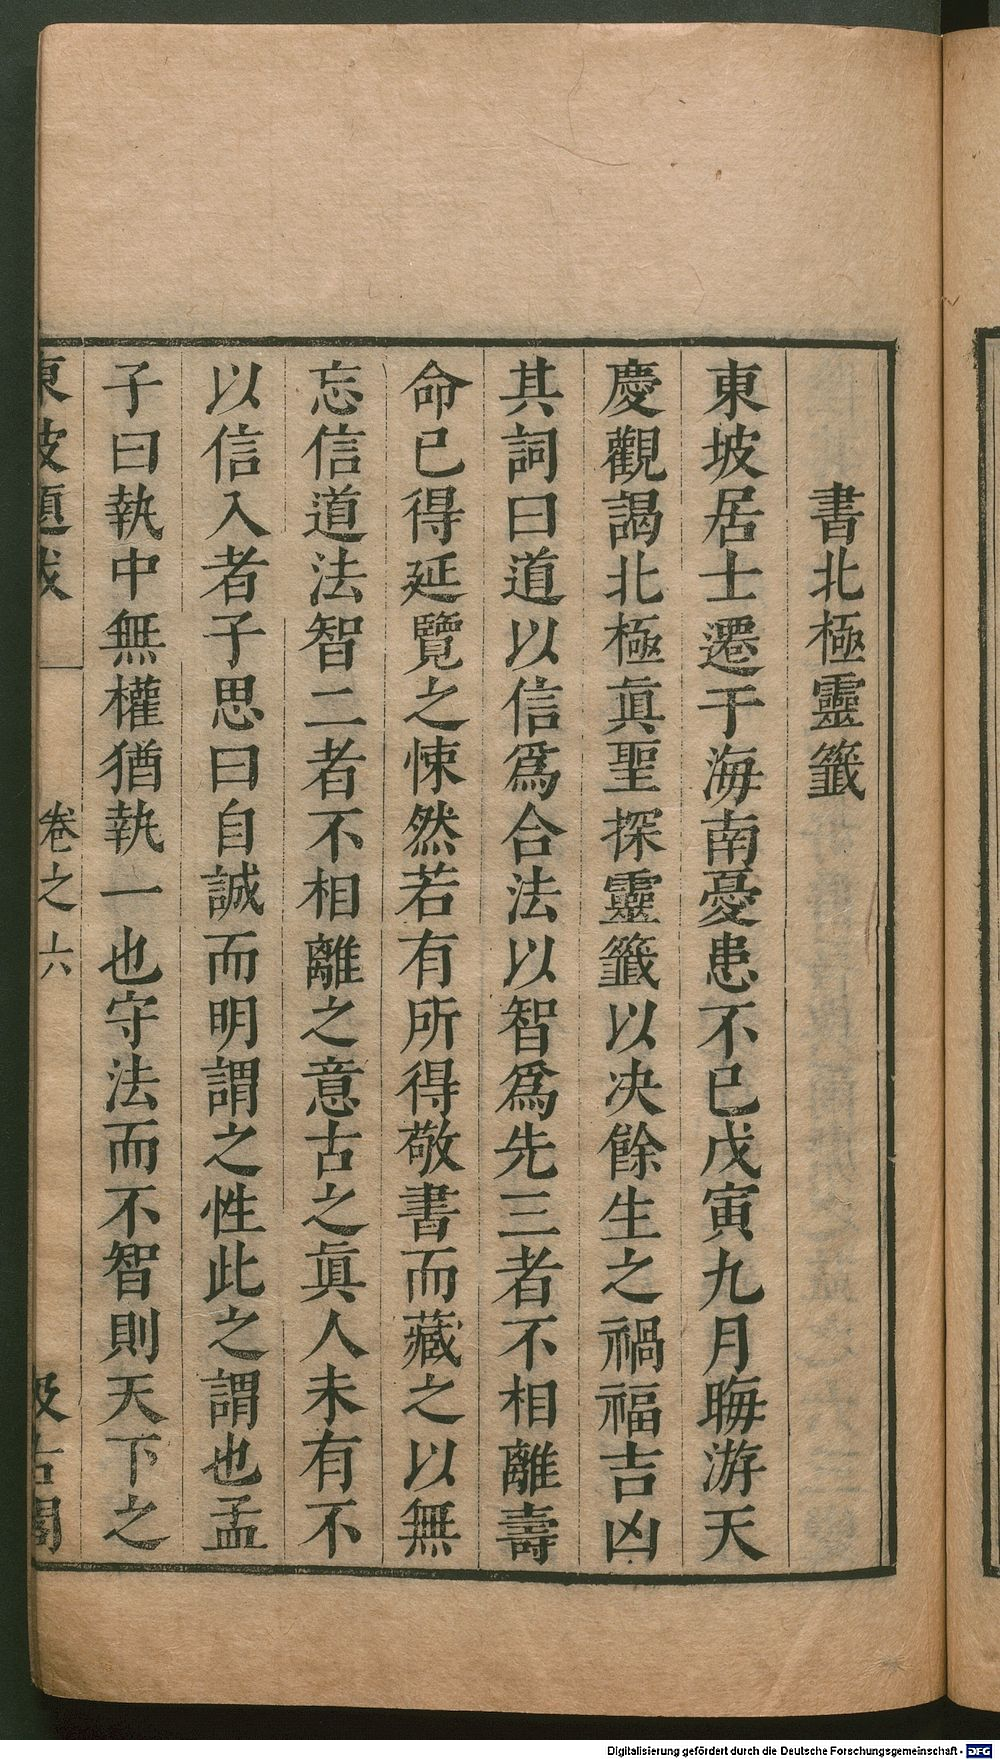 書北極靈籤
東坡居士遷于海南憂患不已戊寅九月晦游天
慶觀謁北極眞聖探靈籤以决餘生之禍福吉凶
其詞曰道以信爲合法以智爲先三者不相離壽
命已得延覽之悚然若有所得敬書而藏之以無
忘信道法智二者不相離之意古之眞人未有不
以信入者子思曰自誠而明謂之性此之謂也孟
子曰執中無權猶執一也守法而不智則天下之
東坡題跋 卷之六 汲古閣
Digitalisierung gefördert durch die Deutsche Forschungsgemeinschaft - DFG